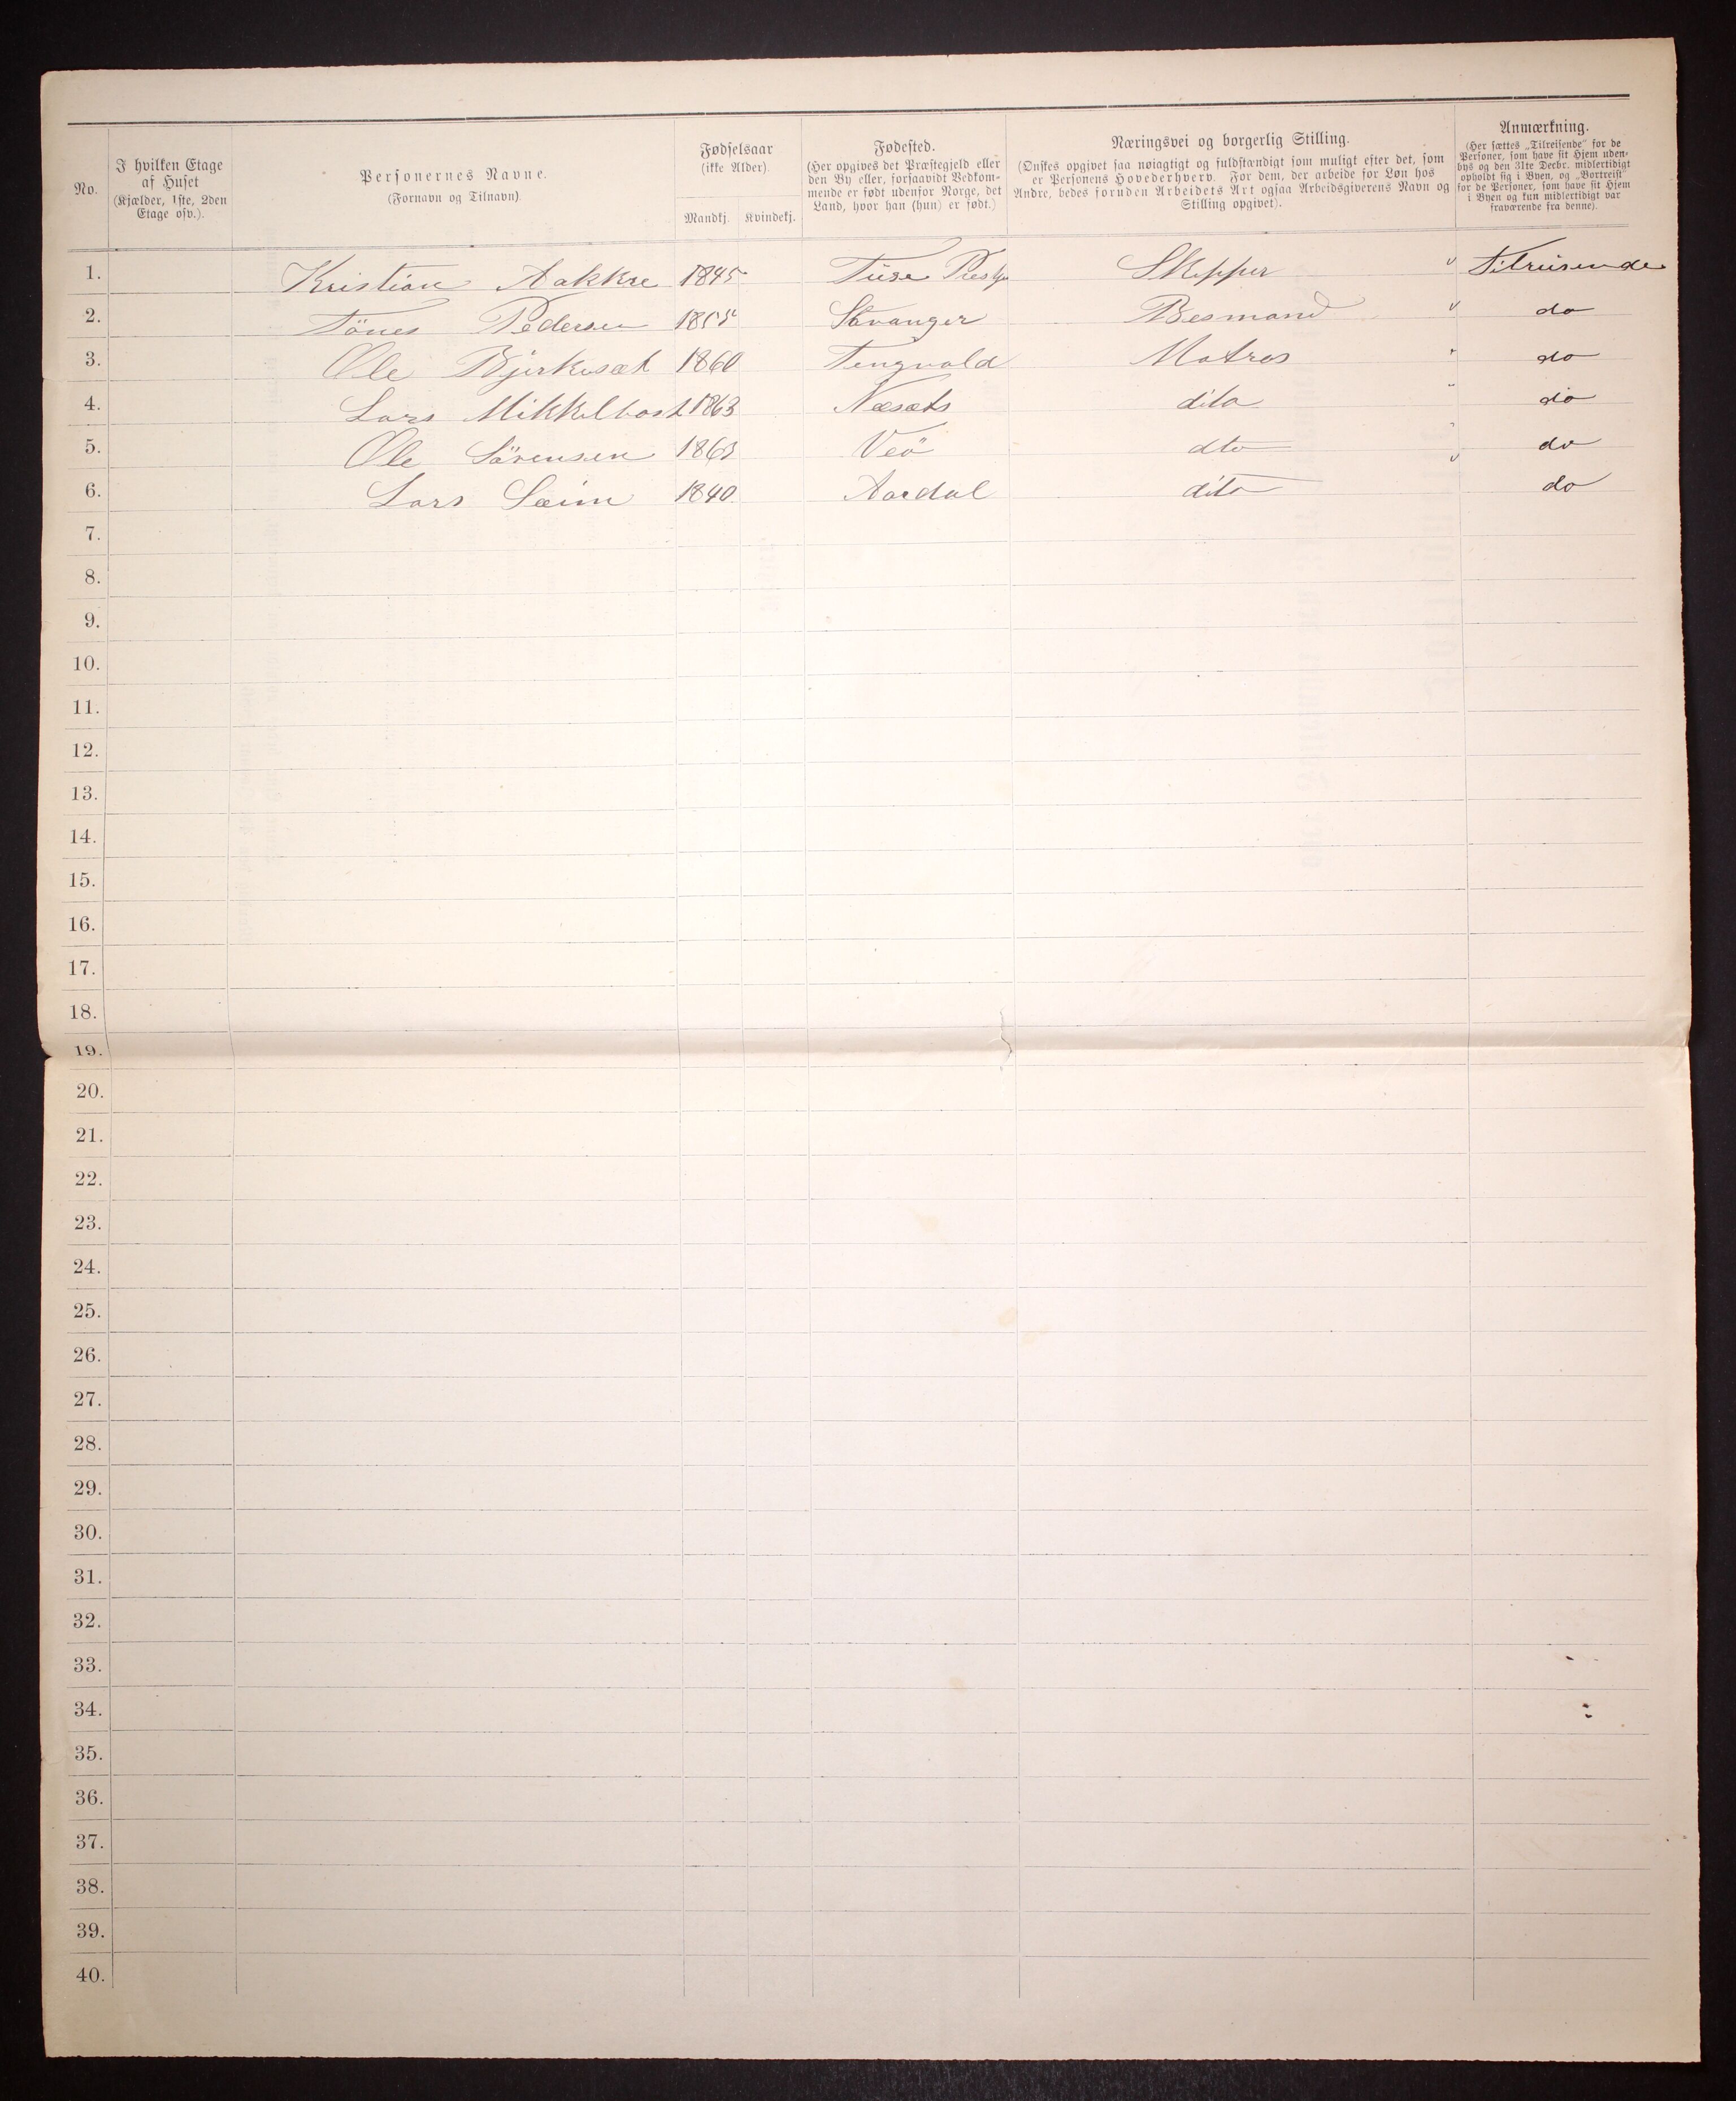 No.
I hvilken Etage
af Huset
(Kjælder, 1ste, 2den
Etage osv.).
Personernes Navne.
(Fornavn og Tilnavn).
Fødselsaar
(ikke Alder).
Mandkj. Kvindekj.
Fødested.
(Her opgives det Præstegjeld eller
den By eller, forsaavidt Vedkom-
mende er født udenfor Norge, det
Land, hvor han (hun) er født.)
Næringsvei og borgerlig Stilling.
(Ønskes opgivet saa nøiagtigt og fuldstændigt som muligt efter det, som
er Personens Hovederhverv. For dem, der arbeide for Løn hos
Andre, bedes foruden Arbeidets Art ogsaa Arbeidsgiverens Navn og
Stilling opgivet).
Anmærkning.
(Her sættes „Tilreisende" for de
Personer, som have sit Hjem uden-
bys og den 31te Decbr. midlertidigt
opholdt sig i Byen, og „Bortreist"
for de Personer, som have sit Hjem
i Byen og kun midlertidigt var
fraværende fra denne).
1. Kristian Aakkre 1845 Skipper Tilreisende
2. Tönes Pedersen 1855 Stavanger Besmand do
3. Ole Bjerkesæt 1860 Tengvold Matros do
4. Lars Mikkelbost 1863 Næsæts dito do
5. Ole Sörensen 1863 Veö dto do
6. Lars Sæim 1840 Aardal dito do
7.
8.
9.
10.
11.
12.
13.
14.
15.
16.
17.
18.
19.
20.
21.
22.
23.
24.
25.
26.
27.
28.
29.
30.
31.
32.
33.
34.
35.
36.
37.
38.
39.
40.